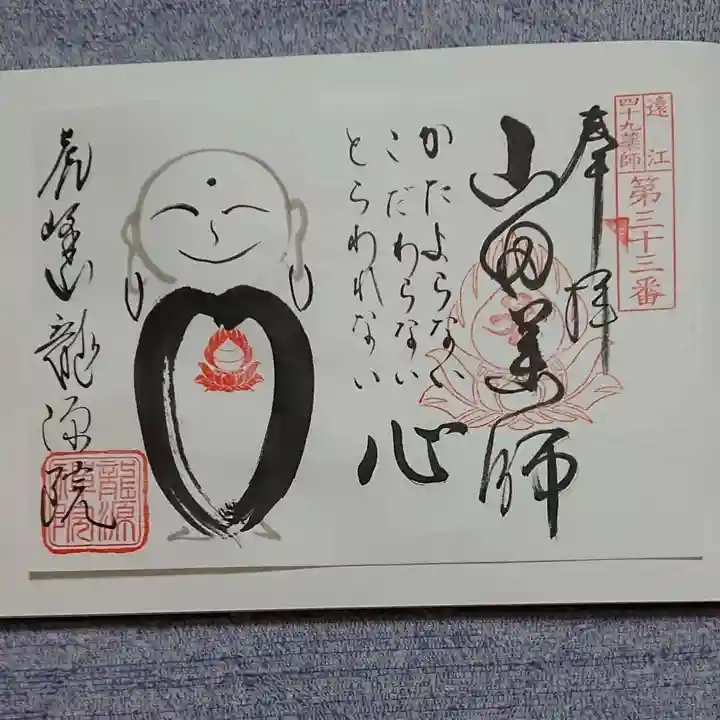 遠江
四十九薬師
第三十三番
奉拝
山田薬師
かたよらない
こだわらない
とらわれない
心
虎峰山龍源院
龍源
禅院